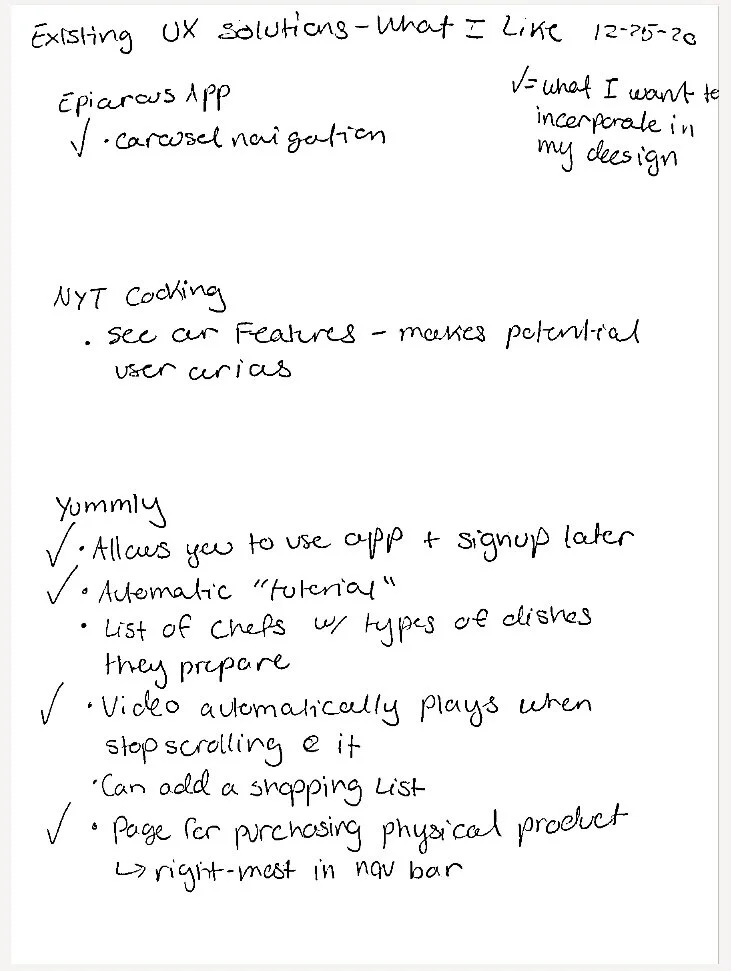 Existing UX Solutions - What I Like 12-25-20
✓ = what I want to
incorporate in
my deesign
Epicurous App
✓ • carousel navigation
NYT Cooking
• see our Features - makes potential
user
Yummly
✓ • Allows you to use app + signup later
✓ • Automatic "tutorial"
• List of chefs w/ types of dishes
they prepare
✓ • Video automatically plays when
stop scrolling @ it
• Can add a shopping List
✓ • Page for purchasing physical product
↳ right-most in nav bar